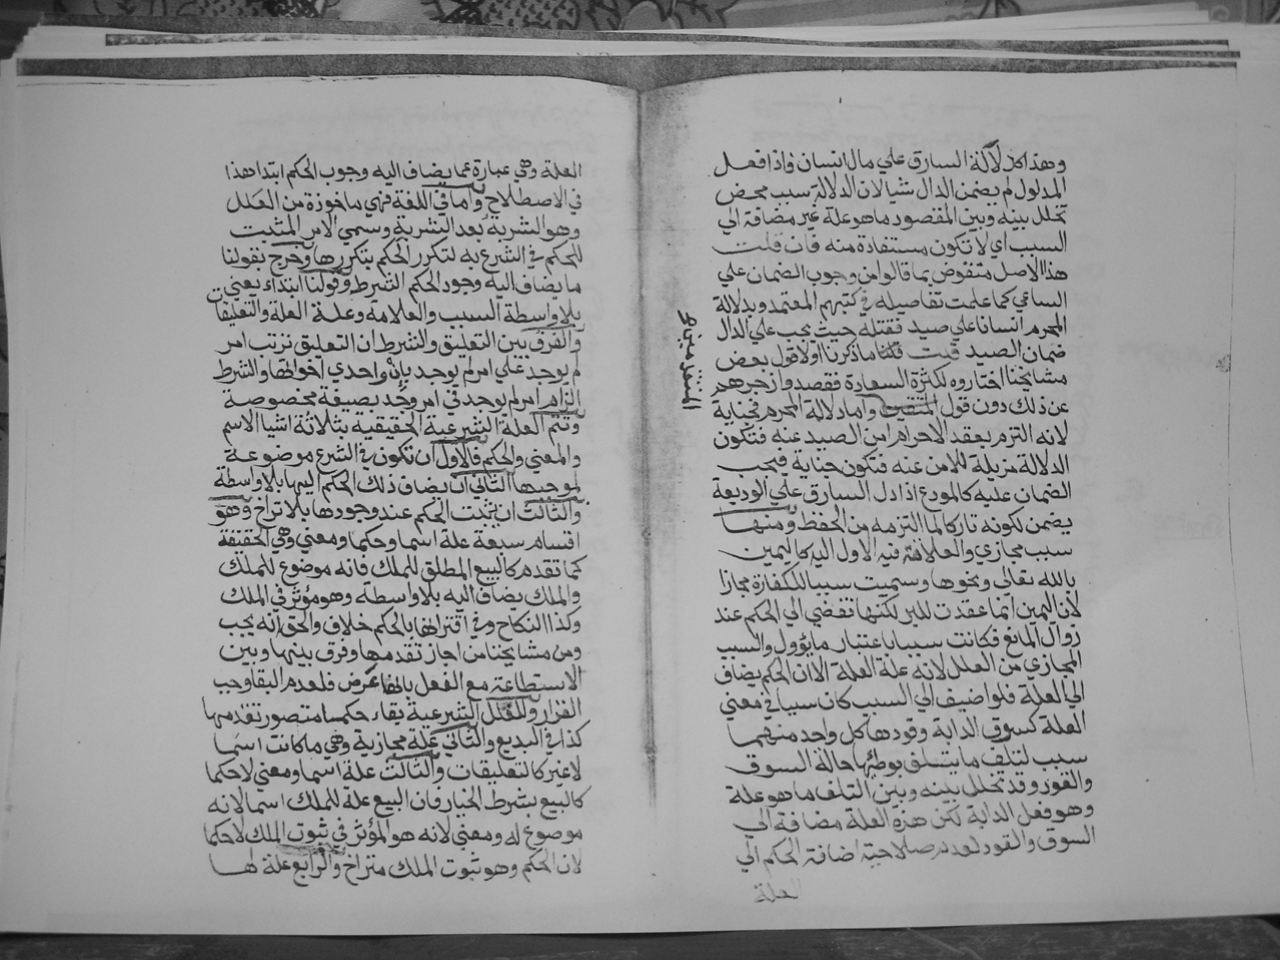 وهذا كدلالة السارق علي مال انسان فاذا فعل
المدلول لم يضمن الدال شيا لان الدلالة سبب محض
تخلل بينه وبين المقصود ما هو علة غير مضافة الي
السبب اي لا تكون مستفادة منه فان قلت
هذا الاصل منقوض بما قالوا من وجوب الضمان علي
الساعي كما علمت تفاصيله في كتبهم المعتمد وبدلالة
المحرم انسانا علي صيد فقتله حيث يجب علي الدال
ضمان الصيد قلت ما ذكرنا اولا قول بعض
مشايخنا اختاروه لكثرة السعادة فقصدوا زجرهم
عن ذلك دون قول المتقدمين واما دلالة المحرم فجناية
لانه التزم بعقد الاحرام امن الصيد عنه فتكون
الدلالة مزيلة للامن عنه فتكون جناية فيجب
الضمان عليه كالمودع اذا دل السارق علي الوديعة
يضمن لكونه تاركا لما التزمه من الحفظ ومنها
سبب مجازي والعلاقة فيه الاول اليه كاليمين
بالله تعالي ونحوها وسميت سببا للكفارة مجازا
لان اليمين انما عقدت للبر لكنها تفضي الي الحكم عند
زوال المانع فكانت سببا باعتبار ما يؤول والسبب
المجازي من العلل لانه علة العلة الا ان الحكم يضاف
الي العلة فلو اضيف الي السبب كان سببا في معني
العلة كسوق الدابة وقودها كل واحد منهما
سبب لتلف ما يتلف بوطئها حالة السوق
والقود وقد تخلل بينه وبين التلف ما هو علة
وهو فعل الدابة لكن هذه العلة مضافة الي
السوق والقود لعدم صلاحية اضافة الحكم الي
العلة
العلة وهي عبارة عما يضاف اليه وجوب الحكم ابتدا هذا
في الاصطلاح واما في اللغة فهي ماخوذة من العلل
وهو الشربة بعد الشربة وسمي الامر المثبت
للحكم في الشرع به لتكرر الحكم بتكررها وخرج بقولنا
ما يضاف اليه وجود الحكم الشرط وقولنا ابتداء يعني
بلا واسطة السبب والعلامة وعلة العلة والتعليقات
والفرق بين التعليق والشرط ان التعليق ترتب امر
لم يوجد علي امر لم يوجد بان او احدي اخواتها والشرط
التزام امر لم يوجد في امر وجد بصيغة مخصوصة
وتتم العلة الشرعية الحقيقية بثلاثة اشيا الاسم
والمعني والحكم فالاول ان تكون في الشرع موضوعة
لموجبها الثاني ان يضاف ذلك الحكم اليها بلا واسطة
والثالث ان يثبت الحكم عند وجودها بلا تراخ وهو
اقسام سبعة علة اسما وحكما ومعني وهي الحقيقة
كما تقدم كالبيع المطلق للملك فانه موضوع للملك
والملك يضاف اليه بلا واسطة وهو مؤثر في الملك
وكذا النكاح وفي اقترانها بالحكم خلاف والحق انه يجب
ومن مشايخنا من اجاز تقدمها وفرق بينها وبين
الاستطاعة مع الفعل بانها عرض فلعدم البقا وجب
القران وللعلل الشرعية بقاء حكما متصور تقدمها
كذا في البديع والثاني علة مجازية وهي ما كانت اسما
لا غير كالتعليقات والثالث علة اسما ومعني لا حكما
كالبيع بشرط الخيار فان البيع علة للملك اسما لانه
موضوع له ومعني لانه هو المؤثر في ثبوت الملك لا حكما
لان الحكم وهو ثبوت الملك متراخ والرابع علة لها